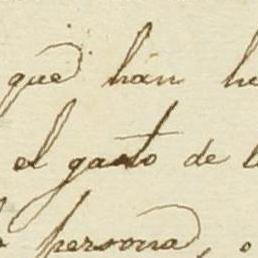 que han he
el gasto de l
persona, o